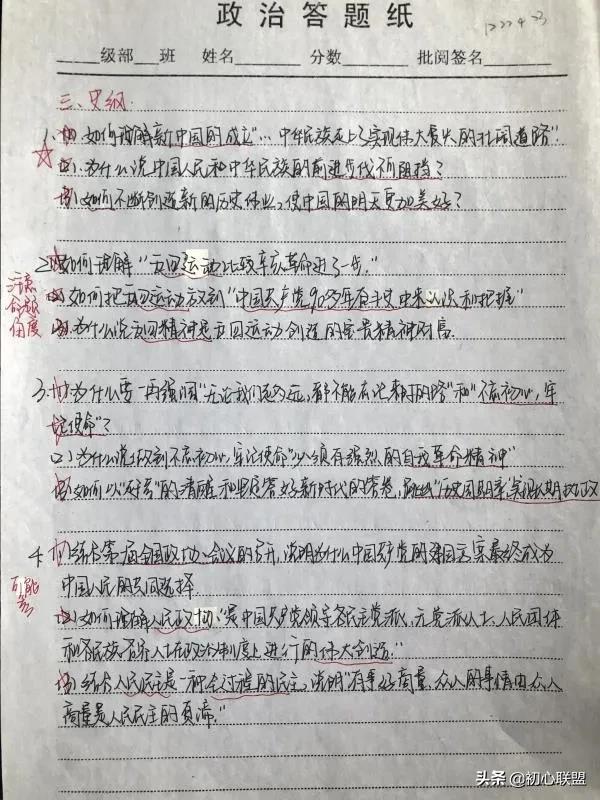 政治答题纸
级部 班 姓名 分数 批阅签名
三、史纲
1. (1). 如何理解新中国的成立"… 中华民族走上了实现伟大复兴的壮阔道路"
(2). 为什么说中国人民和中华民族的前进步伐不可阻挡?
(3). 如何不断创造新的历史伟业,使中国的明天更加美好?
2. (1) 如何理解"五四运动比较辛亥革命进了一步."
(2) 如何把五四运动放到"中国共产党90多年奋斗史中来认识和把握"
(3). 为什么说五四精神是五四运动创造的宝贵精神财富.
命题
角度
3. (1). 为什么要一再强调"无论我们走多远,都不能忘记来时的路"和"不忘初心,牢
记使命"?
(2) 为什么说做到不忘初心,牢记使命"必须有强烈的自我革命精神"
(3) 如何以"赶考"的清醒和坚定答好新时代的答卷,跳出"历史周期率"实现长期执政
4. (1) 结合第一届全国政协会议的召开,说明为什么中国共产党的建国方案最终成为
中国人民的共同选择.
可能
考
(2) 如何理解人民政协"是中国共产党领导各民主党派、无党派人士、人民团体
和各民族各界人士在政治制度上进行的伟大创造."
(3) 结合人民民主是一种全过程的民主,说明"有事好商量,众人的事情由众人
商量是人民民主的真谛."
头条 @初心联盟